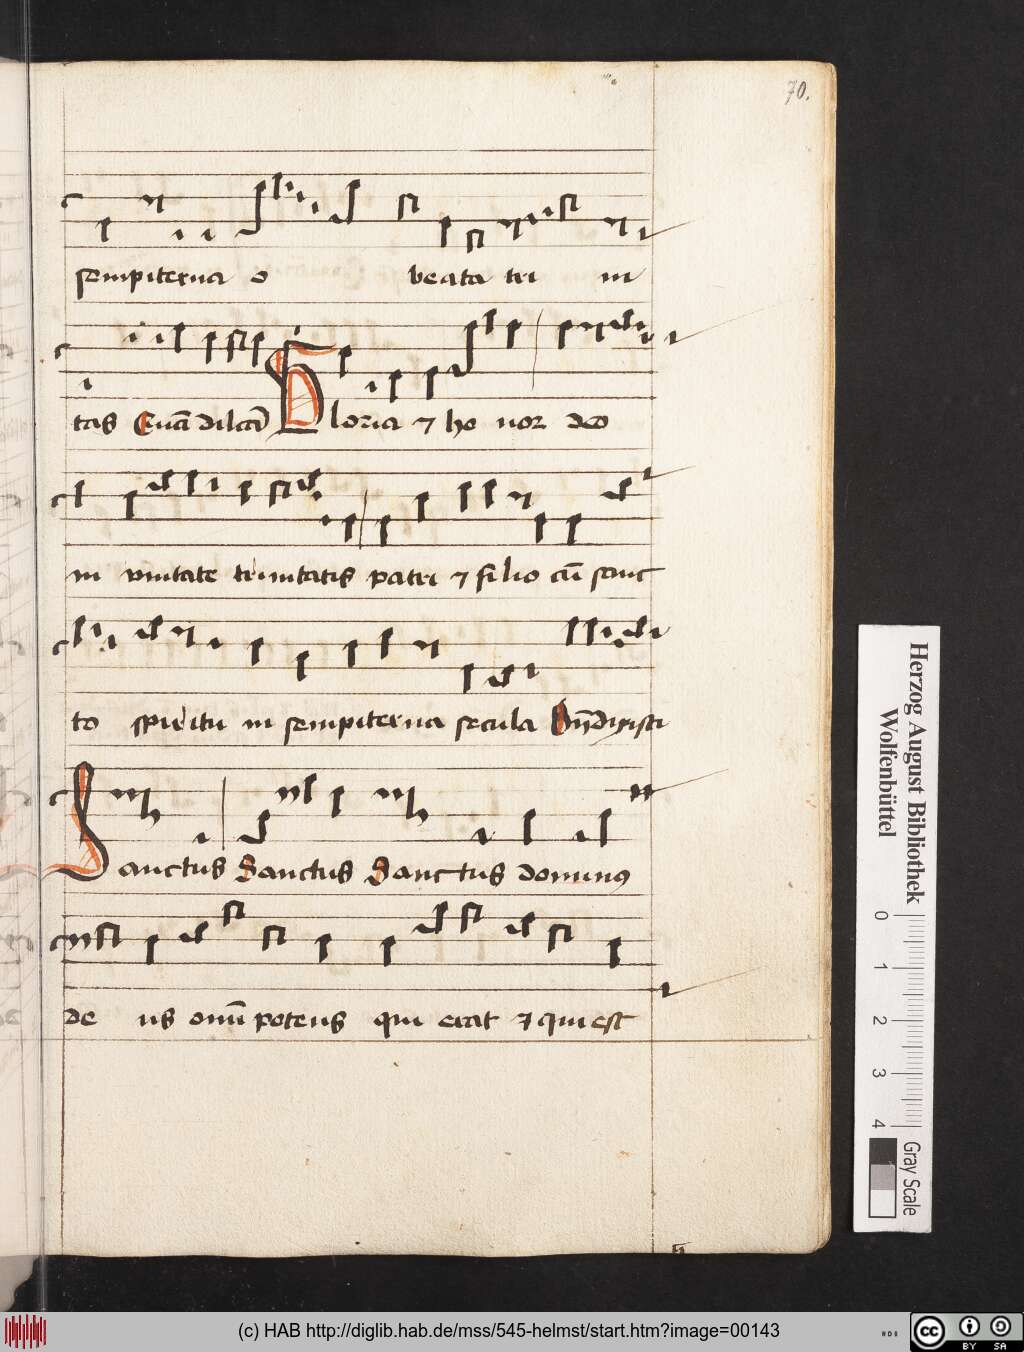 70.
sempiterna o beata tri ni
tas Euã dilcã Gloria ⁊ ho nor deo
in vnitate trinitatis patri ⁊ filio cũ sanc
to spiritu in sempiterna secula
Sanctus Sanctus Sanctus dominꝰ
de us omĩ potens qui erat ⁊ qui est
Herzog August Bibliothek
Wolfenbüttel
0
1
2
3
4
Gray Scale
(c) HAB http://diglib.hab.de/mss/545-helmst/start.htm?image=00143
cc BY SA